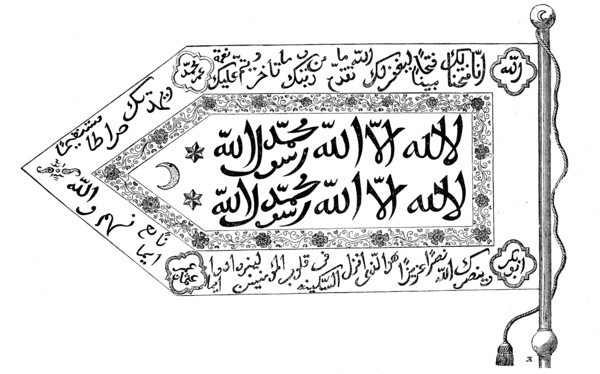 الله
انا فتحنا لك فتحا مبينا ليغفر لك الله ما تقدم من ذنبك وما تأخر ويتم نعمته عليك
محمد
ويهديك صراطا مستقيما
لا اله الا الله محمد رسول الله
لا اله الا الله محمد رسول الله
ابوبكر
وينصرك الله نصرا عزيزا هو الذي انزل السكينه في قلوب المؤمنين
عمر عثمان
والله